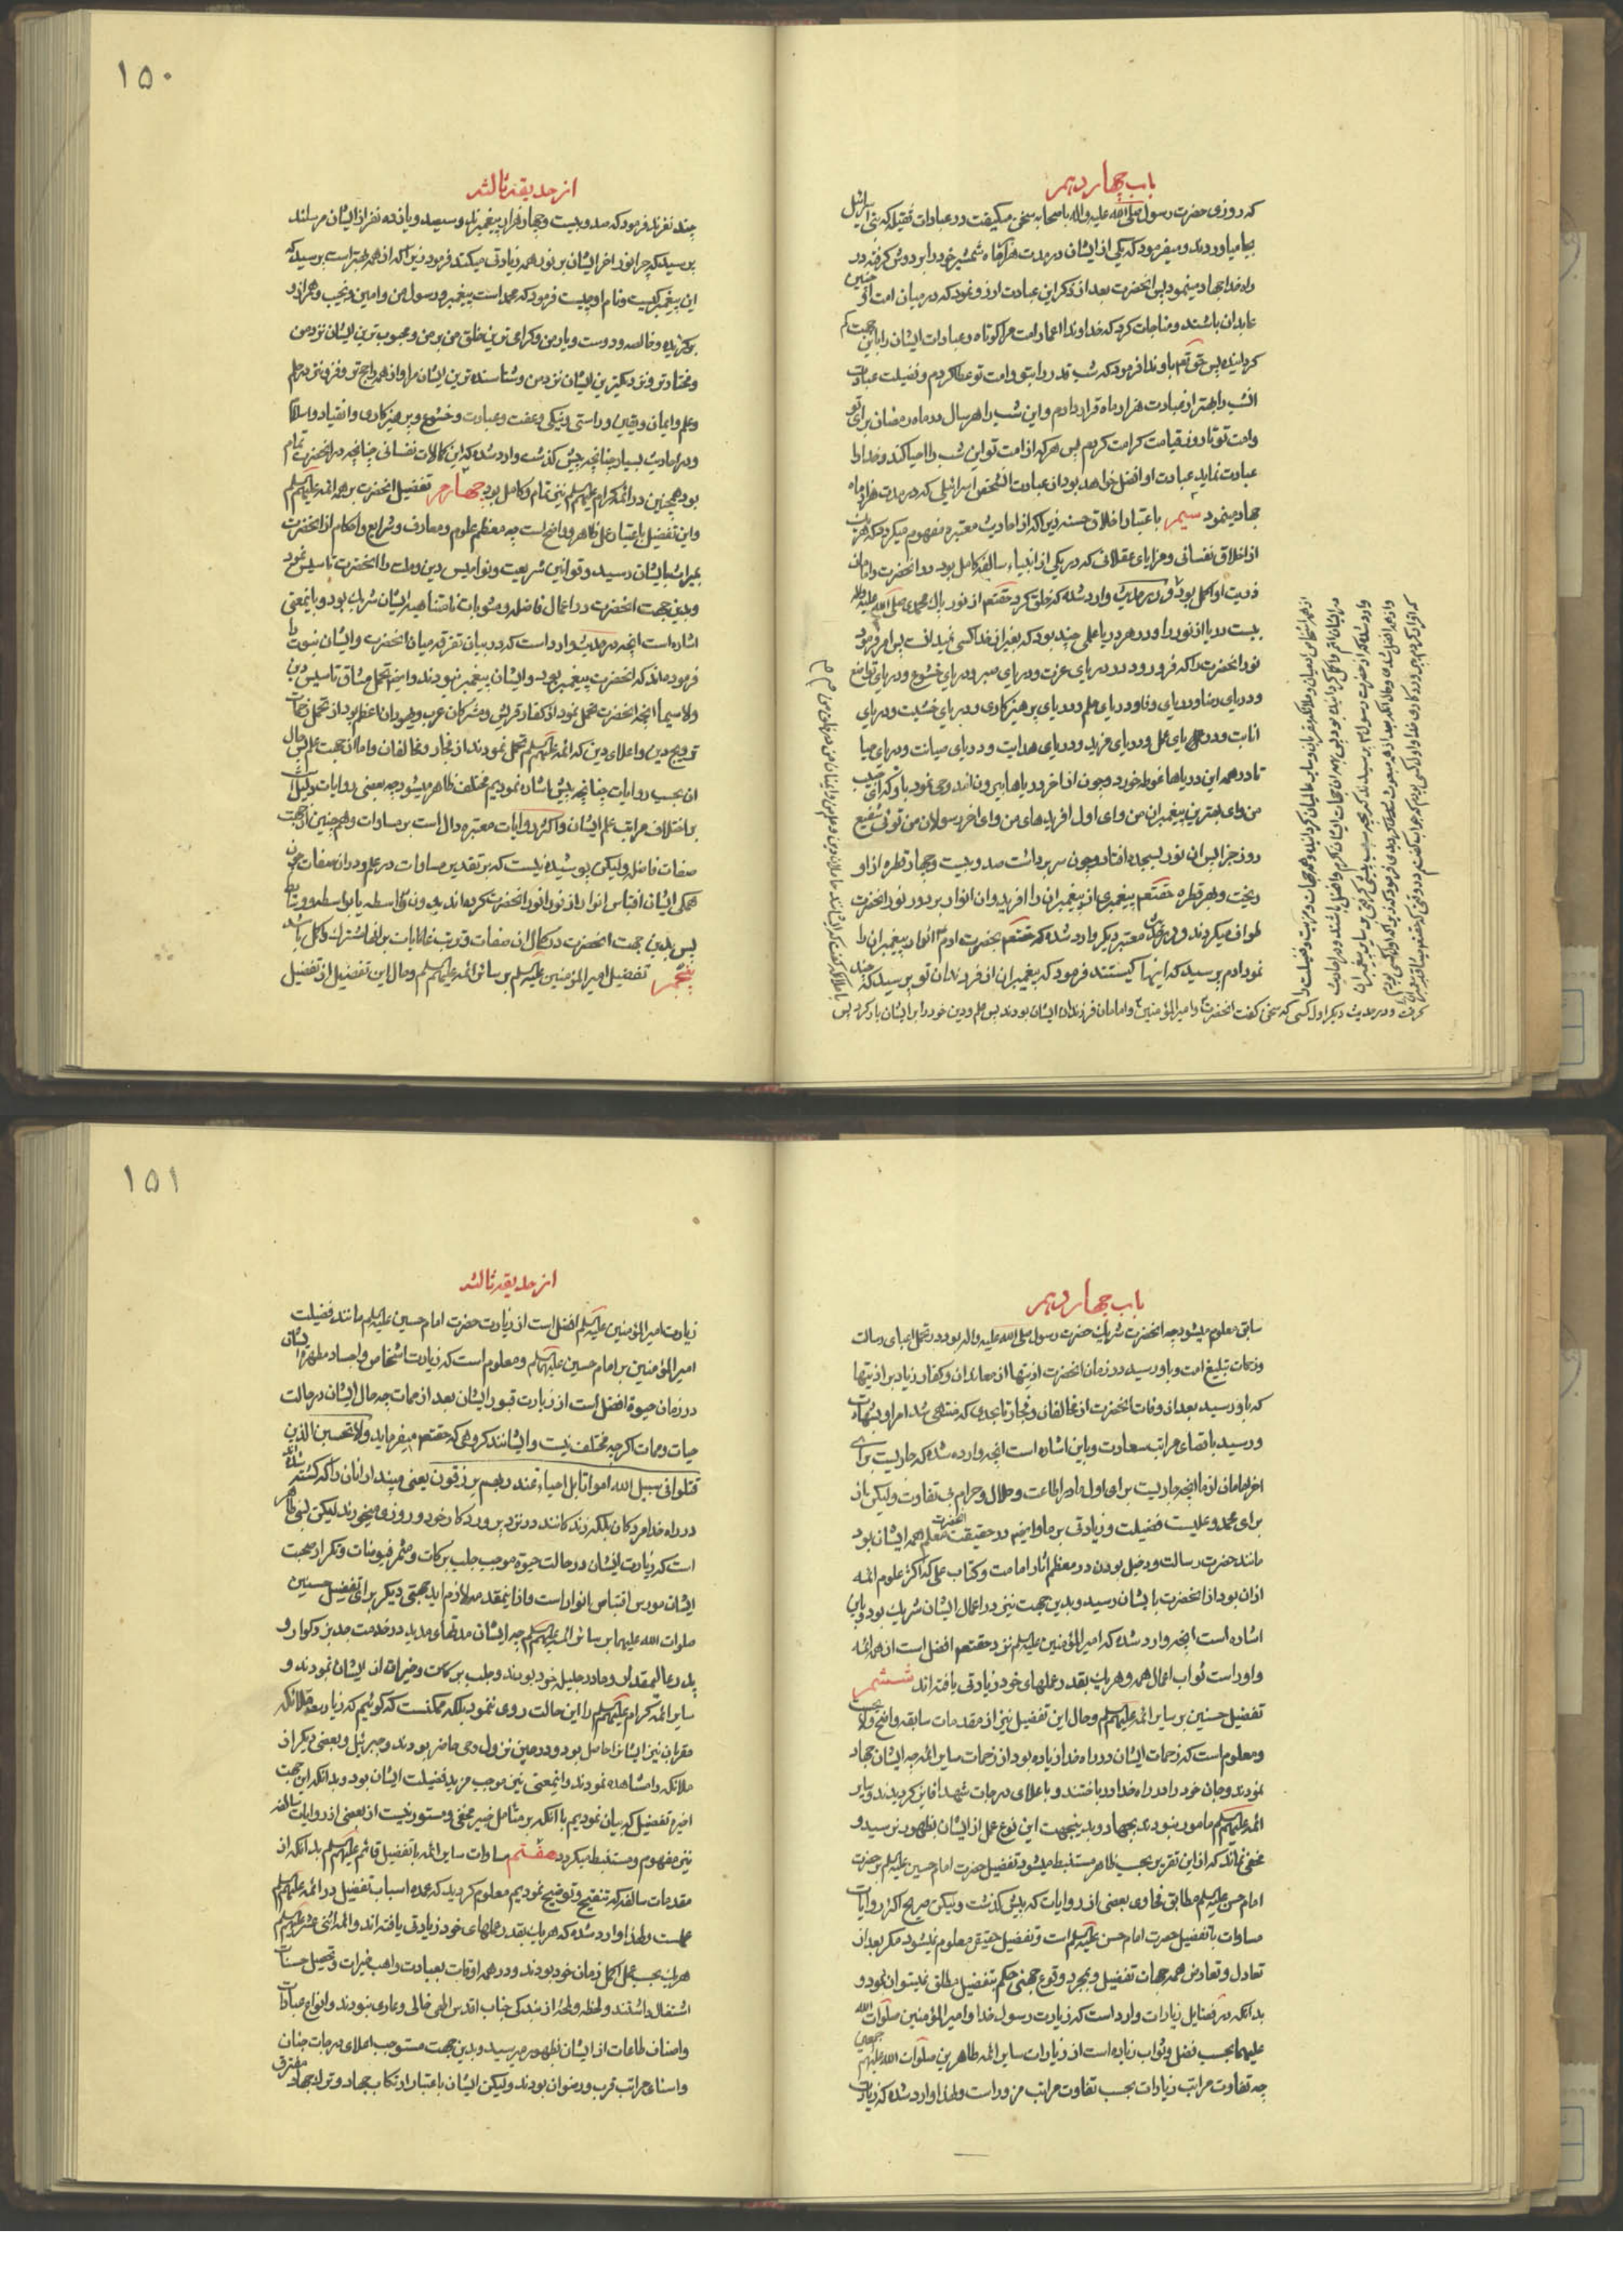 باب چهاردهم
که روزی حضرت رسول صلی الله علیه و اله باصحابه سخن میکیفت در عبادات قبیله که بنی اسرائیل
بجا میاوردند و میفرمود که یکی از ایشان در مدت هزار ماه شمشیر خود را بر دوش کرفته در
راه خدا جهاد مینمود پس انحضرت بعد از ذکر این عبادت ارزو نمود که در میان امت او چنین
عابدان باشند و مناجات کرد که خداوندا اعمار امت مرا کوتاه و عبادات ایشان را باین جهت کم
کردانیده پس حق تعم باو ندا فرمود که شب قدر را بتو و امت تو عطا کردم و فضیلت عبادت
انشب را بهتر از عبادت هزار ماه قرار دادم و این شب را هر سال در ماه رمضان برای تو
و امت تو تا روز قیامت کرامت کردم پس هر که از امت تو این شب را احیا کند و خدا را
عبادت نماید عبادت او افضل خواهد بود از عبادت انشخص اسرائیلی که در مدت هزار ماه
جهاد مینمود سیم باعتبار اخلاق حسنه زیرا که از احادیث معتبره مفهوم میکردد که هر یک
از اخلاق نفسانی و مزایای عقلانی که در یکی از انبیاء سالفه کامل بود در انحضرت و امامان
ذریت او اکمل بود و در حدیث وارد شده که خلق کرد حقتعم از نور پاک محمدی صلی الله علیه واله
بیست دریا از نور و در هر دریا علمی چند بود که بغیر از خدا کسی نمیدانست پس امر فرمود
نور انحضرت را که فرو رود در دریای عزت و دریای صبر و دریای خشوع و دریای تواضع
و دریای رضا و دریای وفا و دریای حلم و دریای پرهیزکاری و دریای خشیت و دریای
انابت و دریای عمل و دریای مزید و دریای هدایت و دریای صیانت و دریای حیا
تا در همه این دریاها غوطه خورد و چون از اخر دریاها بیرون امد وحی نمود باو که ای حبیب
من و ای بهترین پیغمبران من و ای اول افریدهای من و ای اخر رسولان من توئی شفیع
روز جزا پس ان نور بسجده افتاد و چون سر برداشت صد و بیست و چهار قطره از او
ریخت و هر قطره حقتعم پیغمبری از پیغمبران را افرید و ان انوار بر دور نور انحضرت
طواف میکردند و در حدیث معتبر دیکر وارد شده که حقتعم بحضرت ادم انوار پیغمبران را
نمود ادم پرسید که اینها کیستند فرمود که پیغمبران از فرزندان تو پرسید که چند
کرفت و در حدیث دیکر اول کسی که سخن کفت انحضرت و امیر المؤمنین و امامان فرزندان ایشان بودند پس علم و دین خود را بر ایشان بار کرد پس
از حدیقه ثالثه
۱۵۰
چند نفرند فرمود که صد و بیست و چهار هزار پیغمبرند و سیصد و پانزده نفر از ایشان مرسلند
پرسید که چرا نور اخر ایشان بر نور همه زیادتی میکند فرمود زیرا که از همه بهتر است پرسید که
این پیغمبر کیست و نام او چیست فرمود که محمد است پیغمبر و رسول من و امین و نجیب و همراز و
برکزیده و خالصه و دوست و یار من و کرامی ترین خلق من بر من و محبوب ترین ایشان نزد من
و مختارتر و نزدیکترین ایشان نزد من و شناسنده ترین ایشان مرا و از همه راجح تر و فزون تر در حلم
و علم و ایمان و یقین و راستی و نیکی و عفت و عبادت و خشوع و پرهیزکاری و انقیاد و اسلام
و در احادیث بسیار چنانچه پیش کذشت وارد شده که این کمالات نفسانی چنانچه در انحضرت تمام
بود همچنین در ائمه کرام علیهم السلم نیز تمام و کامل بود چهارم تفضیل انحضرت بر همه ائمه علیهم السلم
و این تفضیل باعتبار علل ظاهر و واضح است چه معظم علوم و معارف و شرایع و احکام از انحضرت
بمیراث بایشان رسید و قوانین شریعت و نوامیس دین و ملت را انحضرت تاسیس نمود
و بدین جهت انحضرت در اعمال فاضله و مثوبات نامتناهیه ایشان شریک بود و باینمعنی
اشاره است انچه در حدیث وارد است که در بیان تفرقه میان انحضرت و ایشان نبوت را
فرموده اند که انحضرت پیغمبر بود و ایشان پیغمبر نبودند و ایضا تحمل مشاق تاسیس دین
و لا سیما انچه انحضرت تحمل نمود از کفار قریش و مشرکان عرب و یهودان اعظم بود از تحمل زحمات
ترویج دین و اعلای دین که ائمه علیهم السلم تحمل نمودند از فجار و مخالفان و اما از جهت علم پس حال
ان بحسب روایات چنانچه پیش اشاره نمودیم مختلف ظاهر میشود چه بعضی روایات دلیل است
بر اختلاف مراتب علم ایشان و اکثر روایات معتبره دال است بر مساوات و همچنین از جهت
صفات فاضله ولیکن پوشیده نیست که بر تقدیر مساوات در علم و در ان صفات چون
همکی ایشان اقتباس انوار از نور انور انحضرت کرده اند بدون واسطه یا بواسطه و وسایط
پس بدین جهت انحضرت در کمال ان صفات و ترتب غایات بر انها اشرف و اکمل باشد
پنجم تفضیل امیر المؤمنین علیه السلم بر سائر ائمه علیهم السلم و حال این تفضیل از تفضیل
باب چهاردهم
سابق معلوم میشود چه انحضرت شریک حضرت رسول صلی الله علیه واله بود در تحمل اعبای رسالت
و زحمات تبلیغ امت و باو رسید در زمان انحضرت اذیتها از معاندان و کفار زیاد بر اذیتها
که باو رسید بعد از وفات انحضرت از مخالفان و فجار تا بحدی که منتهی شد امر او بشهادت
و رسید باقصای مراتب سعادت و باین اشاره است انچه وارد شده که جاریست برای
اخر امامان از ما انچه جاریست برای اول ما در اطاعت و حلال و حرام بی تفاوت ولیکن باز
برای محمد و علیست فضیلت و زیادتی بر ما و ایضا در حقیقت انحضرت معلم همه ایشان بود
مانند حضرت رسالت و دخیل بودن در معظم اثار امامت و کتاب علی که اکثر علوم ائمه
از ان بود از انحضرت بایشان رسید و بدین جهت نیز در اعمال ایشان شریک بود و باین
اشاره است انچه وارد شده که امیر المؤمنین علیه السلم نزد حقتعم افضل است از همه ائمه
و او راست ثواب اعمال همه و هر یک بقدر عملهای خود زیادتی یافته اند ششم
تفضیل حسنین بر سایر ائمه علیهم السلم و حال این تفضیل نیز از مقدمات سابقه واضح و لایح است
و معلوم است که زحمات ایشان در راه خدا زیاده بود از زحمات سایر ائمه چه ایشان جهاد
نمودند و جان خود را در راه خدا در باختند و باعلای درجات شهدا فایز کردیدند و سایر
ائمه علیهم السلم مامور نبودند بجهاد و بدینجهت این نوع عمل از ایشان بظهور نرسید و
مخفی نماند که از این تقریر بحسب ظاهر مستنبط میشود تفضیل حضرت امام حسین علیه السلم بر حضرت
امام حسن علیه السلم مطابق فحاوی بعضی از روایات که پیش کذشت ولیکن صریح اکثر روایات
مساوات یا تفضیل حضرت امام حسن علیه السلم است و تفضیل حقیقی معلوم نمیشود مکر بعد از
تعادل و تعارض همه جهات تفضیل و بمجرد وقوع جهتی حکم بتفضیل مطلق نمیتوان نمود و
بدانکه در فضایل زیارات وارد است که زیارت رسول خدا و امیر المؤمنین صلوات الله
علیهما بحسب فضل و ثواب زیاده است از زیارات سایر ائمه طاهرین صلوات الله علیهم اجمعین
چه تفاوت مراتب زیارات بحسب تفاوت مراتب مزور است و لهذا وارد شده که زیارت
از حدیقه ثالثه
۱۵۱
زیارت امیر المؤمنین علیه السلم افضل است از زیارت حضرت امام حسین علیه السلم مانند فضیلت
امیر المؤمنین بر امام حسین علیهما السلم و معلوم است که زیارت اشخاص و اجساد مطهره ایشان
در زمان حیوة افضل است از زیارت قبور ایشان بعد از ممات چه حال ایشان در حالت
حیات و ممات اکرچه مختلف نیست و ایشانند کروهی که حقتعم میفرماید ولا تحسبن الذین
قتلوا فی سبیل الله امواتا بل احیاء عند ربهم یرزقون یعنی مپندار انان را که کشته شده اند
در راه خدا مردکان بلکه زندکانند در نزد پرورد کار خود و روزی میخورند لیکن بسی ظاهر
است که زیارت ایشان در حالت حیوة موجب جلب برکات و مثمر فیوضات و تکرار صحبت
ایشان مورث اقتباس انوار است و از اینمقدمه لازم اید جهتی دیکر برای تفضیل حسنین
صلوات الله علیهما بر سائر ائمه علیهم السلم چه ایشان مدتهای مدید در خدمت جد بزرکوار و
پدر عالیمقدار و مادر جلیل خود بودند و جلب برکات و خیرات از ایشان نمودند و
سایر ائمه کرام علیهم السلم را این حالت روی ننمود بلکه ممکنست که کوئیم که زیارت ملائکه
مقربان نیز ایشانرا حاصل بود و در حین نزول وحی حاضر بودند و جبرئیل و بعضی دیکر از
ملائکه را مشاهده نمودند و اینمعنی نیز موجب مزید فضیلت ایشان بود و بدانکه این جهت
اخیره تفضیل که بیان نمودیم با انکه بر متامل خبیر مخفی و مستور نیست از بعضی از روایات سالفه
نیز مفهوم و مستنبط میکردد هفتم مساوات سایر ائمه یا تفضیل قائم علیهم السلم بدانکه از
مقدمات سالفه که تنقیح و توضیح نمودیم معلوم کردید که عمده اسباب تفضیل در ائمه علیهم السلم
عملست و لهذا وارد شده که هر یک بقدر عملهای خود زیادتی یافته اند و ائمه اثنی عشر علیهم السلم
هر یک بحسب عمل اکمل زمان خود بودند و در همه اوقات بعبادت واهب خیرات و تحصیل حسنات
اشتغال داشتند و لحظه و لمحه از بندکی جناب اقدس الهی خالی و عاری نبودند و انواع عبادات
و اصناف طاعات از ایشان بظهور میرسید و بدین جهت مستوجب اعلای درجات جنان
و اسنای مراتب قرب و رضوان بودند ولیکن ایشان باعتبار ارتکاب جهاد و ترک جهاد مفترق